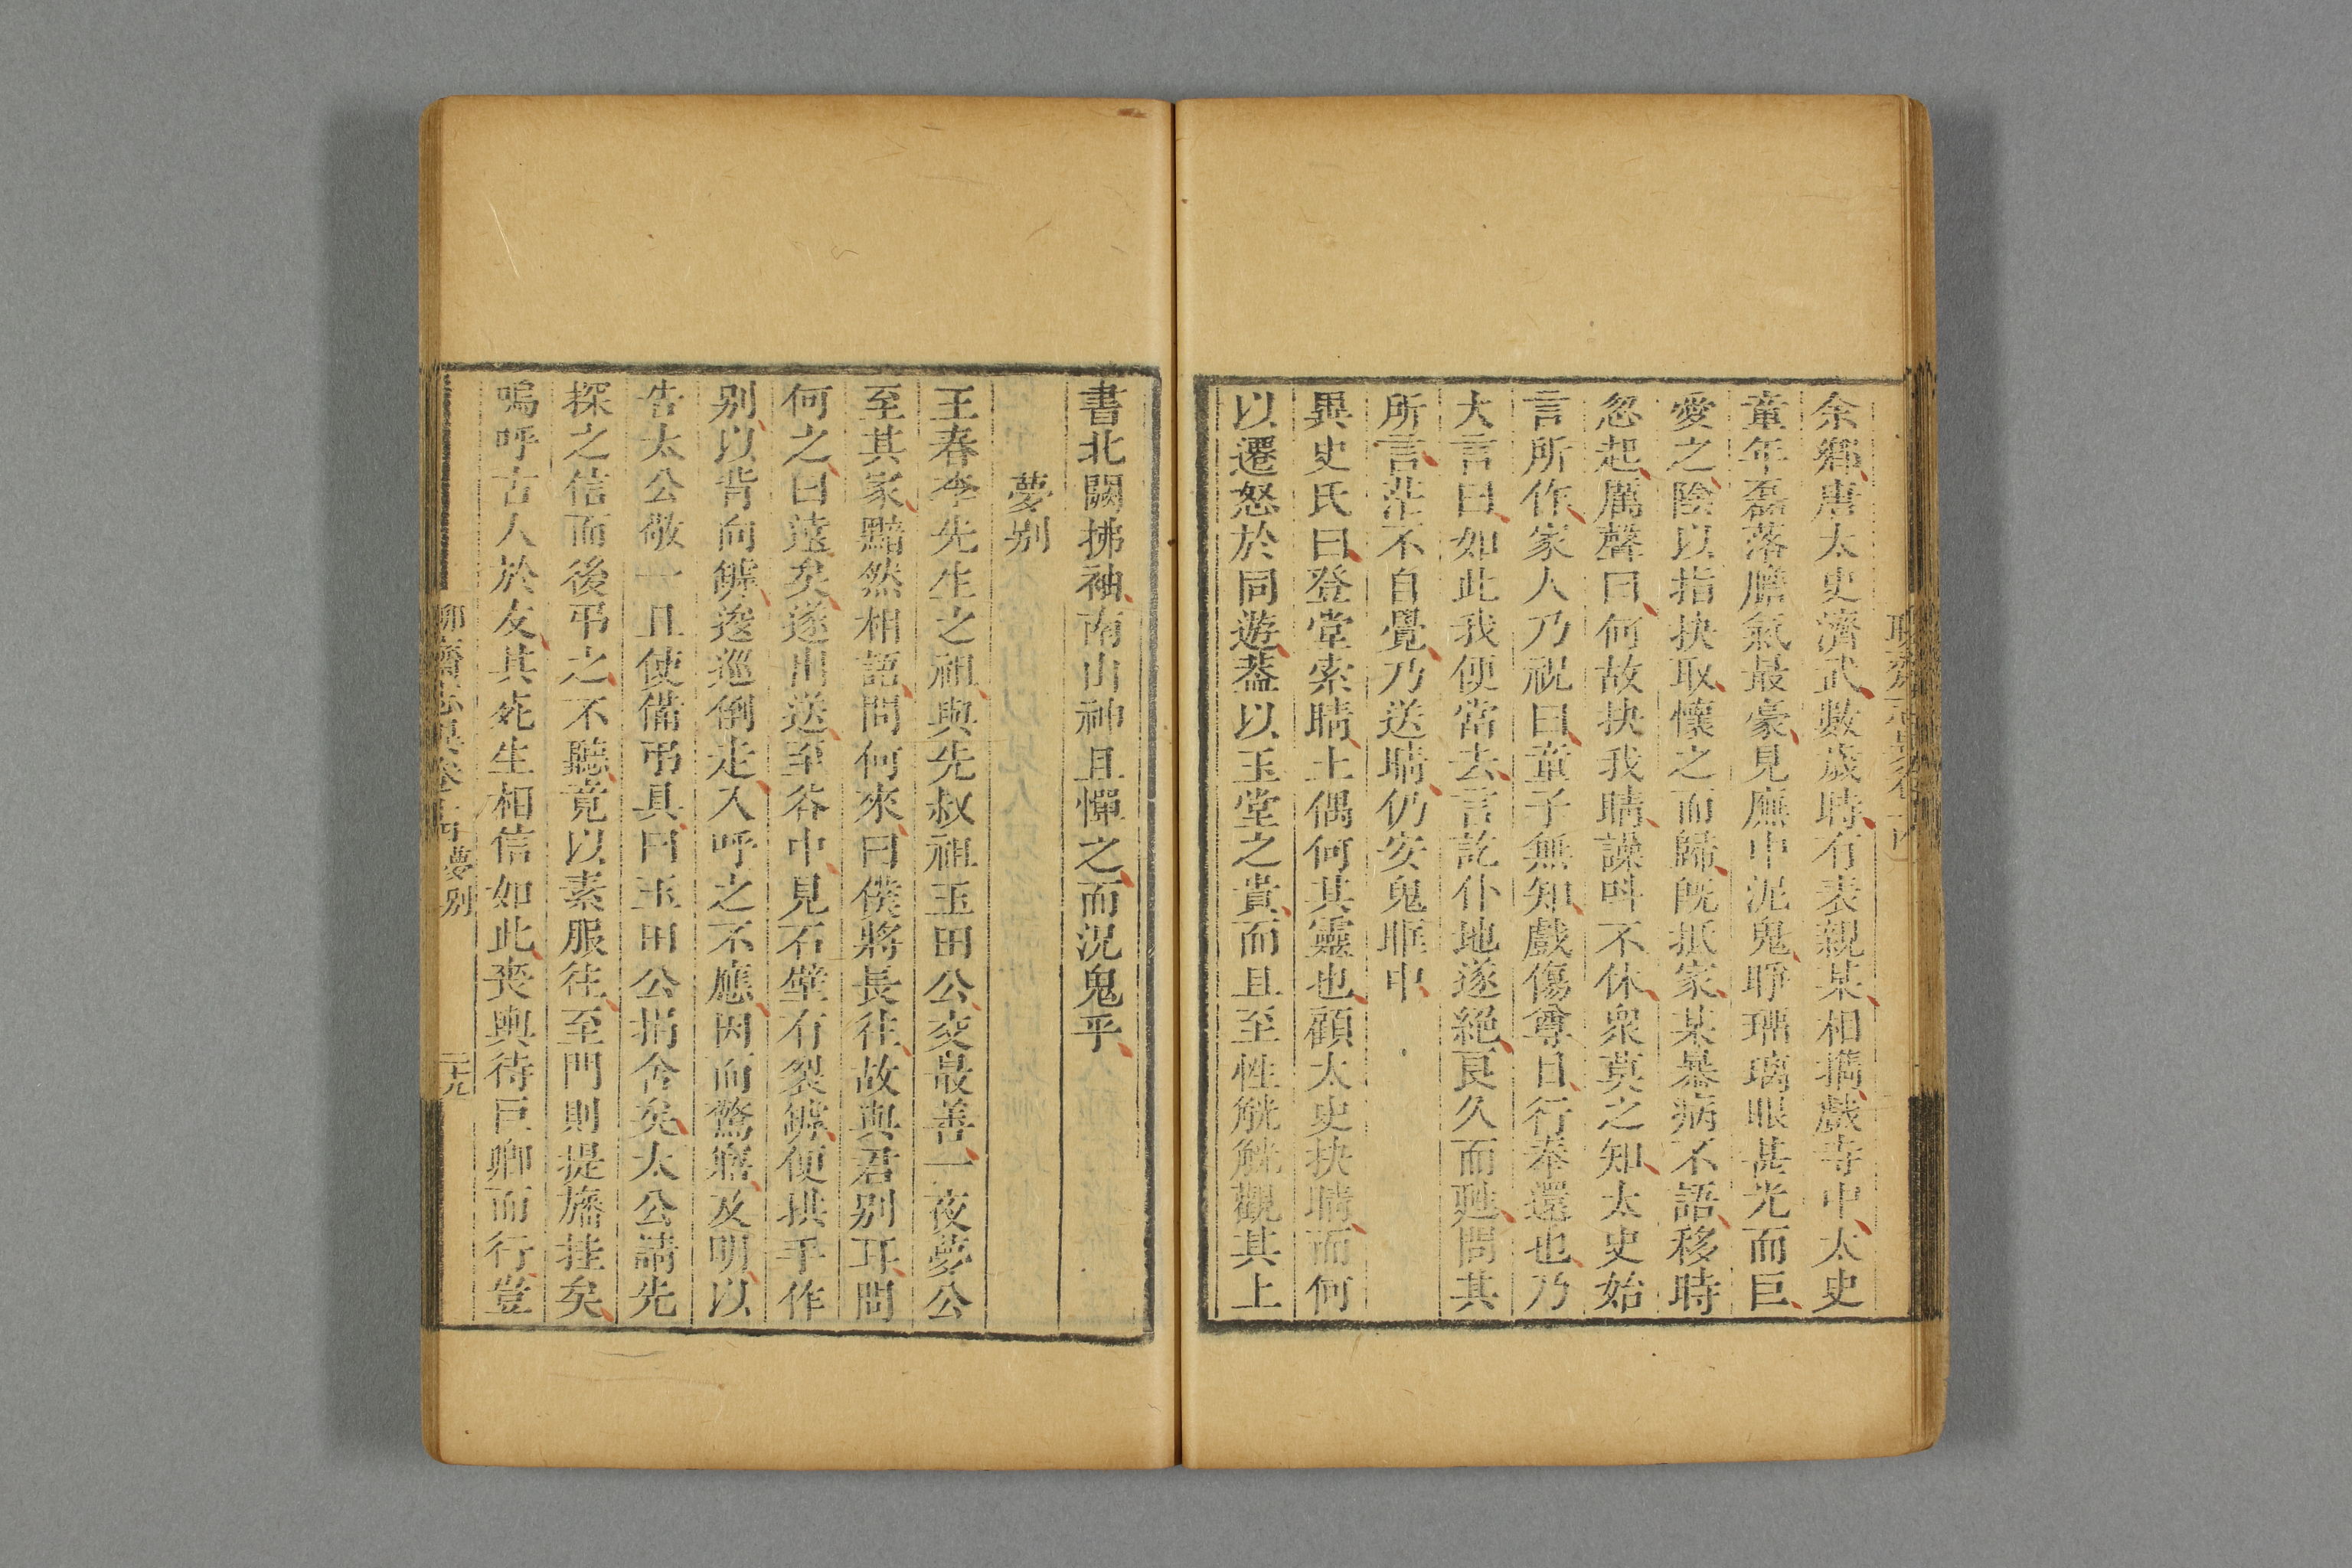 余鄉唐太史濟武數歲時有表親某相攜戲寺中太史
童年磊落膽氣最豪見廡中泥鬼睜瑠璃眼甚光而巨
愛之陰以指抉取懷之而歸旣抵家某暴病不語移時
忽起厲聲曰何故抉我睛譟呌不休衆莫之知太史始
言所作家人乃祝曰童子無知戲傷尊目行奉還也乃
大言曰如此我便當去言訖仆地遂絕良久而甦問其
所言茫不自覺乃送睛仍安鬼眶中
異史氏曰登堂索睛土偶何其靈也顧太史抉睛而何
以遷怒於同遊葢以玉堂之貴而且至性觥觥觀其上
書北闕拂袖南山神且憚之而況鬼乎
夢别
王春李先生之祖與先叔祖玉田公交最善一夜夢公
至其家黯然相語問何來曰僕將長往故與君别耳問
何之曰遠矣遂出送至谷中見石壁有裂罅便拱手作
别以背向罅逡巡倒走入呼之不應因而驚寤及明以
告太公敬一且使備弔具曰玉田公捐舍矣太公請先
探之信而後弔之不聽竟以素服往至門則提旛挂矣
嗚呼古人於友其死生相信如此喪輿待巨卿而行豈
聊齋志異卷十四 夢别 二十九